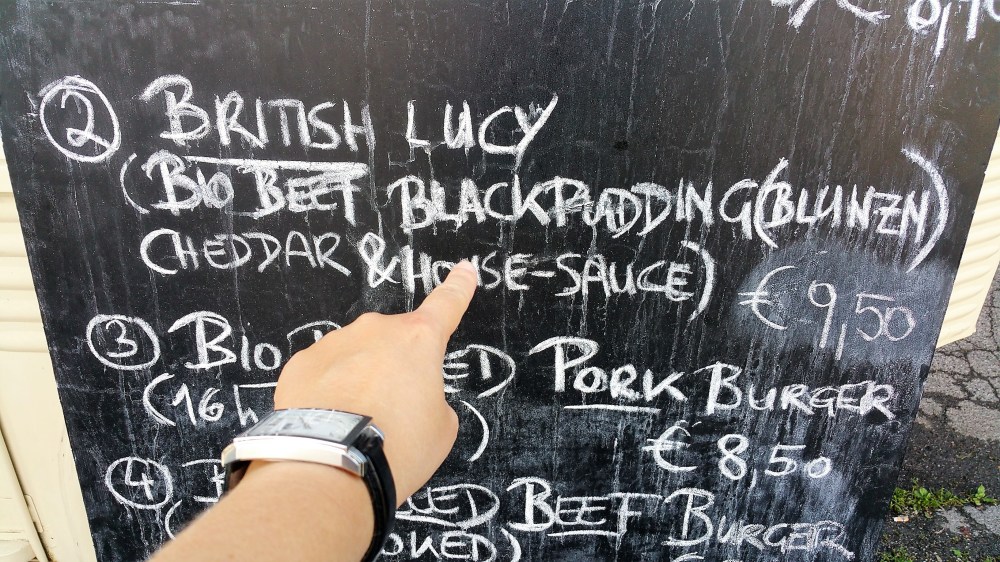 2 BRITISH LUCY
(BIO BEEF BLACKPUDDING (BLUNZN)
CHEDDAR & HOUSE-SAUCE)
€ 9,50
3 BIO PORK BURGER
(16h )
€ 8,50
4 BEEF BURGER